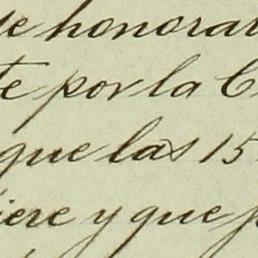 de honorar
te por la C
que las 15
iere y que p